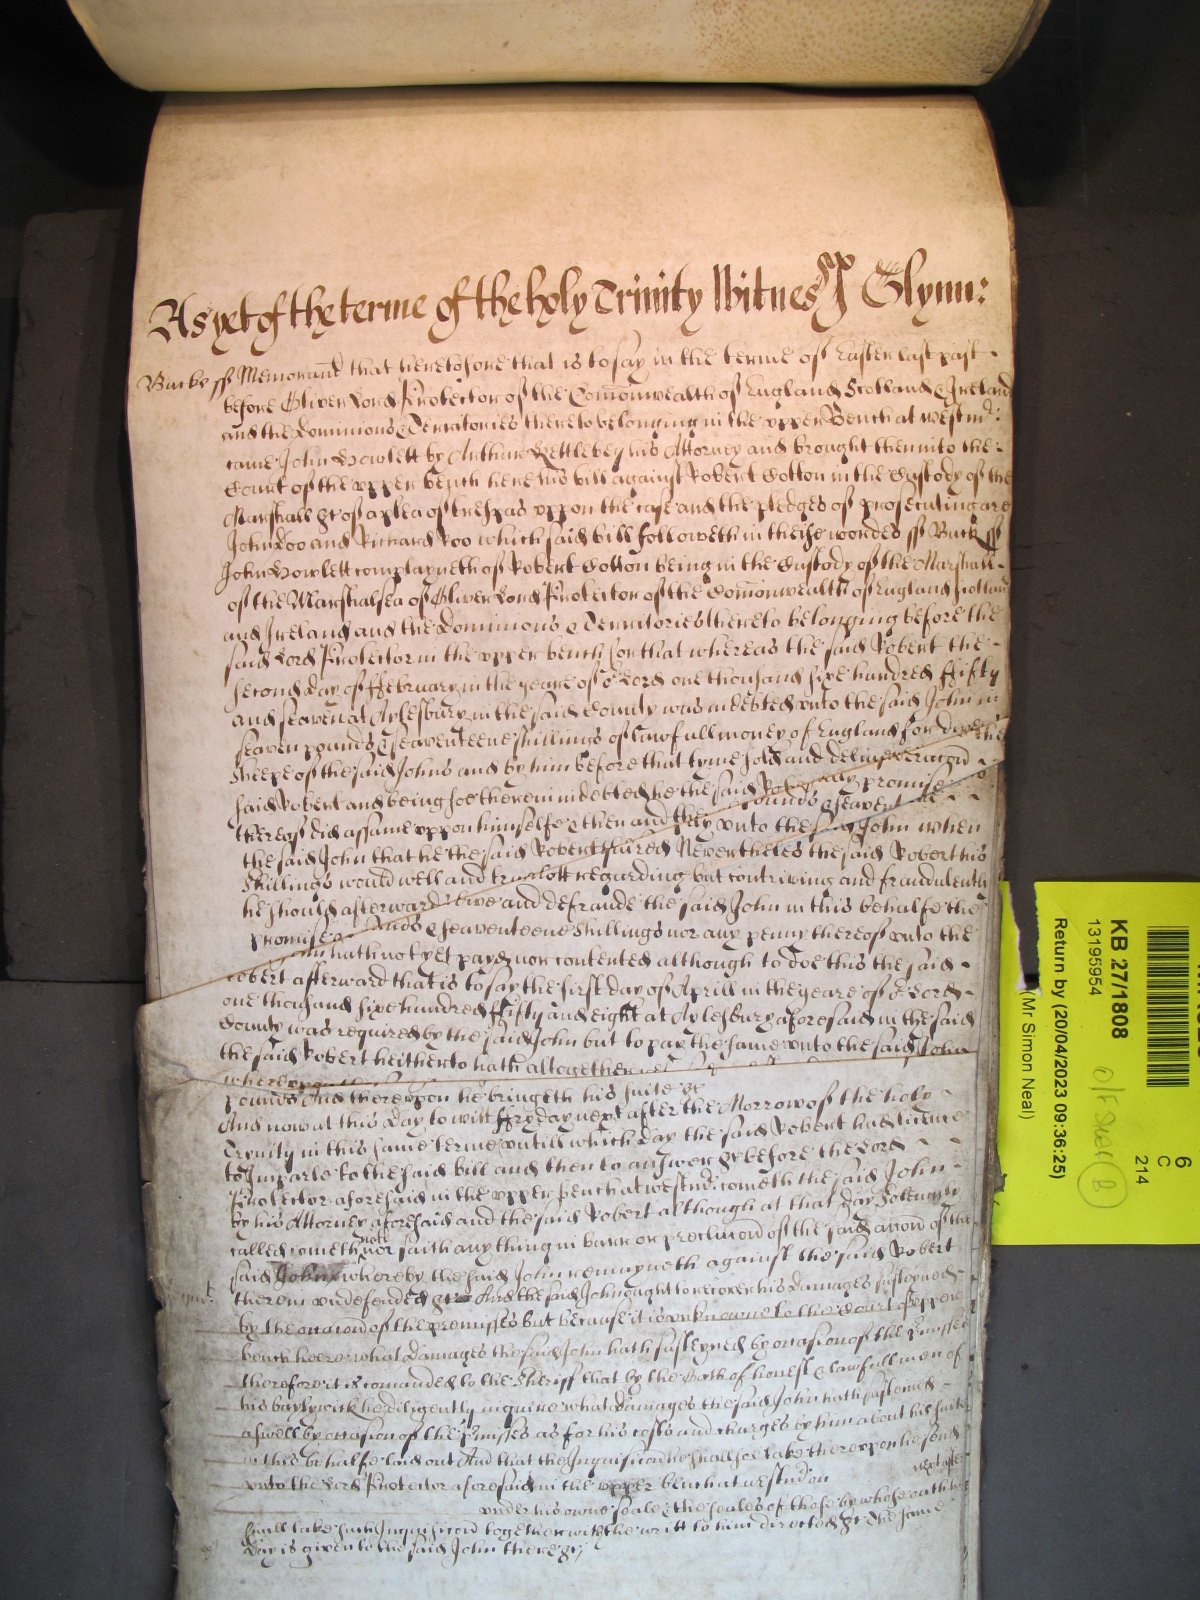 As yet of the terme of the holy Trinity Witnes Glynn:
Bucks ss Memorand that heretofore that is to say in the terme of Easter last past
before Oliver Lord Protector of the Comonwealth of England Scotland & Ireland
and the Dominions & Terratories thereto belonging in the upper Bench at Westmr:
came John Howlett by Arthur Kettleby his Attorney and brought then into the
Court of the upper bench here his bill against Robert Cotton in the Custody of the
Marshall &c of a plea of trespas uppon the case and the pledges of prosecuting are
John Doo and Richard Roo which said bill followeth in theise wordes ss Buck ss
John Howlett complayneth of Robert Cotton being in the Custody of the Marshall
of the Marshalsea of Oliver Lord Protector of the Comonwealth of England Scotland
and Ireland and the Dominions & Territories thereto belonging before the
said Lord Protector in the upper bench for that whereas the said Robert the
second day of ffebruary in the yeare of or Lord one thousand sixe hundred ffifty
and seaven at Aylesbury in the said County was indebted unto the said John in
seaven pounds & seaventeene shillings of lawfull money of England for divers
sheepe of the said Johns and by him before that tyme sold and delivered
said Robert and being soe therein indebted he the said
thereof did assume uppon himselfe & then and promise
the said John that he the said Robert pounds & seaven unto the said John when
shillings would well and required Neverthelesse the said Robert his
he should afterward regarding but contriving and fraudulently
promise and defraude the said John in this behalfe the
pounds & seaventeene shillings nor any penny thereof unto the
hath not yet payd nor contented although to doe this the said
Robert afterward that is to say the first day of Aprill in the yeare of or Lord
one thousand sixe hundred ffifty and eight at Aylesbury aforesaid in the said
County was required by the said John but to pay the same unto the said John
the said Robert heitherto hath altogether
pounds And thereupon he bringeth his suite &c
And now at this day to witt ffryday next after the Morrow of the holy
Trynity in this same terme untill which day the said Robert had licence
to Imparle to the said bill and then to answer &c before the Lord
Protector aforesaid in the upper bench at Westmr: cometh the said John
by his Attorney aforesaid and the said Robert although at that day solemnly
called cometh not nor saith any thing in barr or preclucion of the said accon of the
said John whereby the said John remayneth against the said Robert
therein undefended &c And the said John ought to recover his Damages susteyned
by the occacion of the premisses but because it is unknowne to the Court of upper
bench heere what Damages the said John hath susteyned by occasion of the Pmisses
therefore it is comanded to the Sheriff that by the Oath of honest & lawfull men of
his baylywick he diligently inquire what damages the said John hath susteined
aswell by occasion of the Pmisses as for his costs and charges by him about his suite
in this behalfe laid out And that the Inquisicion which he shall soe take thereupon he send
unto the Lord Protector aforesaid in the upper bench at Westm on next after
under his owne seale & the seales of those by whose oath he
shall take such Inquisicon together with the writt to him directed &c The same
day is given to the said John there &c
KB 27/1808
13195954
Return by (20/04/2023 09:36:25)
(Mr Simon Neal)
6
C
214
B